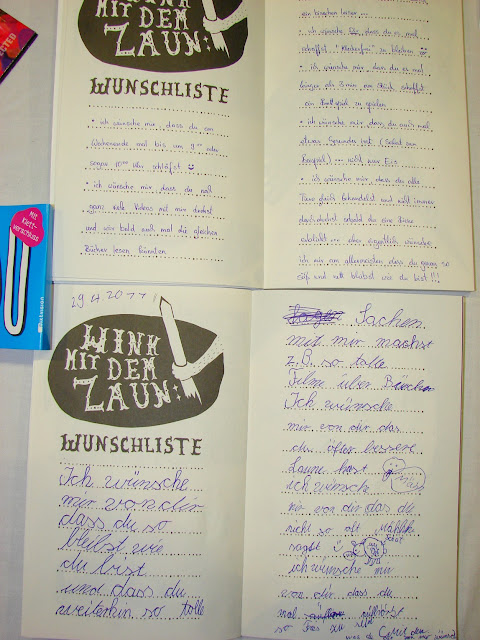 WINK
MIT DEM
ZAUN:
WUNSCHLISTE
• ich wünsche mir, dass du am
Wochenende mal bis um 9 oder
sogar 10 Uhr schläfst
• ich wünsche mir, dass du mal
ganz viele Videos mit mir drehst
und wir bald auch mal die gleichen
Bücher lesen könnten
ein bisschen leiser ...
• ich wünsche dass du es mal
schaffst "Kleckerfrei" zu bleiben
• ich wünsche mir, dass du es mal
länger als 3 min am Stück schaffst
ein Brettspiel zu spielen
• ich wünsche mir, dass du auch mal
etwas Gesundes isst (Salat zum
Beispiel) ... nicht nur Eis
• ich wünsche mir, dass du alle
Tiere gleich behandelst und nicht immer
sobald sie eine Düse
... aber eigentlich wünsche
ich mir am allermeisten dass du genau so
süß und nett bleibst wie du bist !!!
Mit
Klett-
verschluss
29.4.2011!
WINK
MIT DEM
ZAUN:
WUNSCHLISTE
Ich wünsche
mir von dir
dass du so
bleibst wie
du bist
und dass du
weiterhin so tolle
Sachen
mit mir machst
z.B. so tolle
Filme über Bücher
Ich wünsche
mir von dir das
du öfter bessere
Laune hast
ich wünsche
mir von dir das du
nicht so oft
sagst
ich wünsche mir
von dir dass du
mal aufhörst
so zu